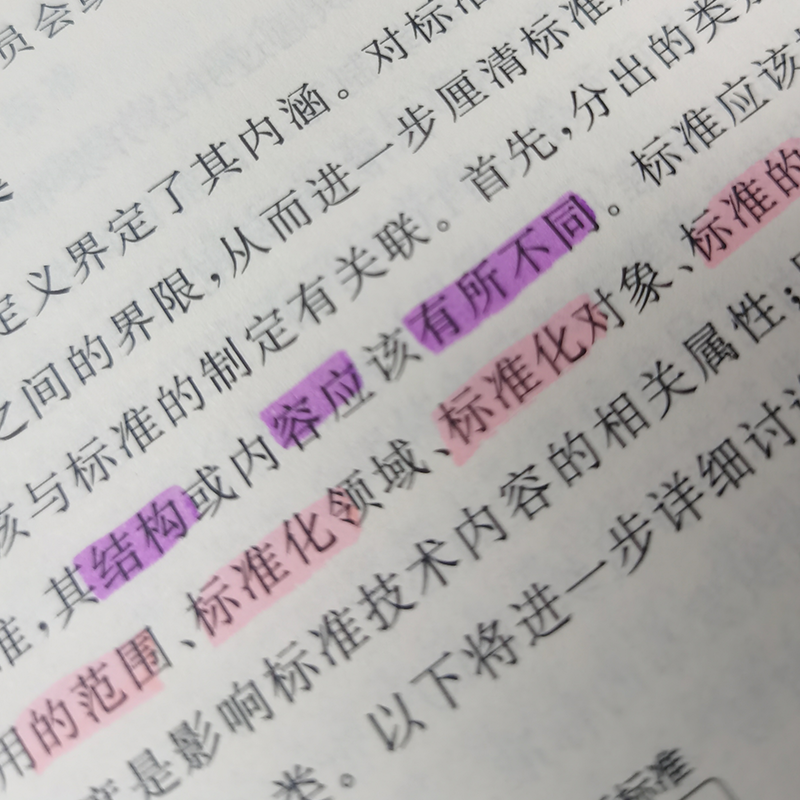 员会
定义界定了其内涵。对标准
之间的界限,从而进一步厘清标准
该与标准的制定有关联。首先,分出的类
准,其结构或内容应该有所不同。标准应该
用的范围、标准化领域、标准化对象、标准的
度是影响标准技术内容的相关属性;
类。以下将进一步详细讨
标准